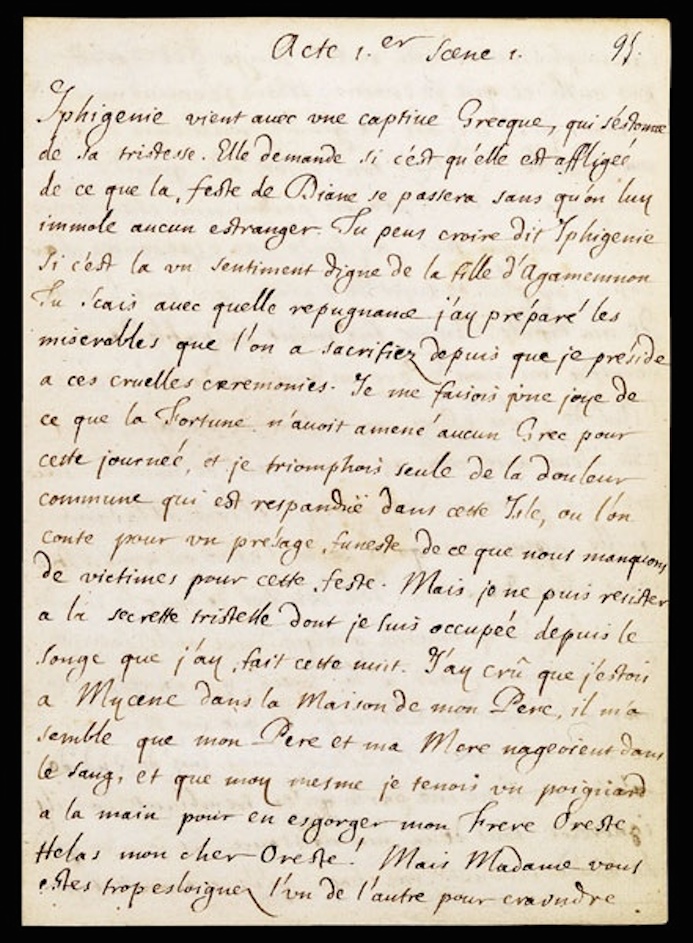 Acte 1.er Scene 1. 95.
Iphigenie vient auec vne captiue Grecque, qui s'éstonne
de sa tristesse. Elle demande si c'est qu'elle est affligeé
de ce que la feste de Diane se passera sans qu'on luy
immole aucun estranger. Tu peus croire dit Iphigenie
si c'est la vn sentiment digne de la fille d'Agamemnon
Tu scais auec quelle repugnance j'ay préparé les
miserables que l'on a sacrifiez depuis que je preside
a ces cruelles ceremonies. Je me faisois vne joye de
ce que la Fortune n'auoit amené aucun Grec pour
cette journeé, et je triomphois seule de la douleur
commune qui est respanduë dans cette Isle, ou l'on
conte pour vn présage funeste de ce que nous manquons
de victimes pour cette feste. Mais je ne puis resister
a la secrette tristesse dont je suis occupeé depuis le
songe que j'ay fait cette nuit. J'ay crû que j'estois
a Mycene dans la Maison de mon Pere, il m'a
semblé que mon Pere et ma Mere nageoient dans
le sang, et que moy mesme je tenois vn poignard
a la main pour en esgorger mon Frere Oreste.
Helas mon cher Oreste! Mais Madame vous
estes trop esloignez l'vn de l'autre pour craindre